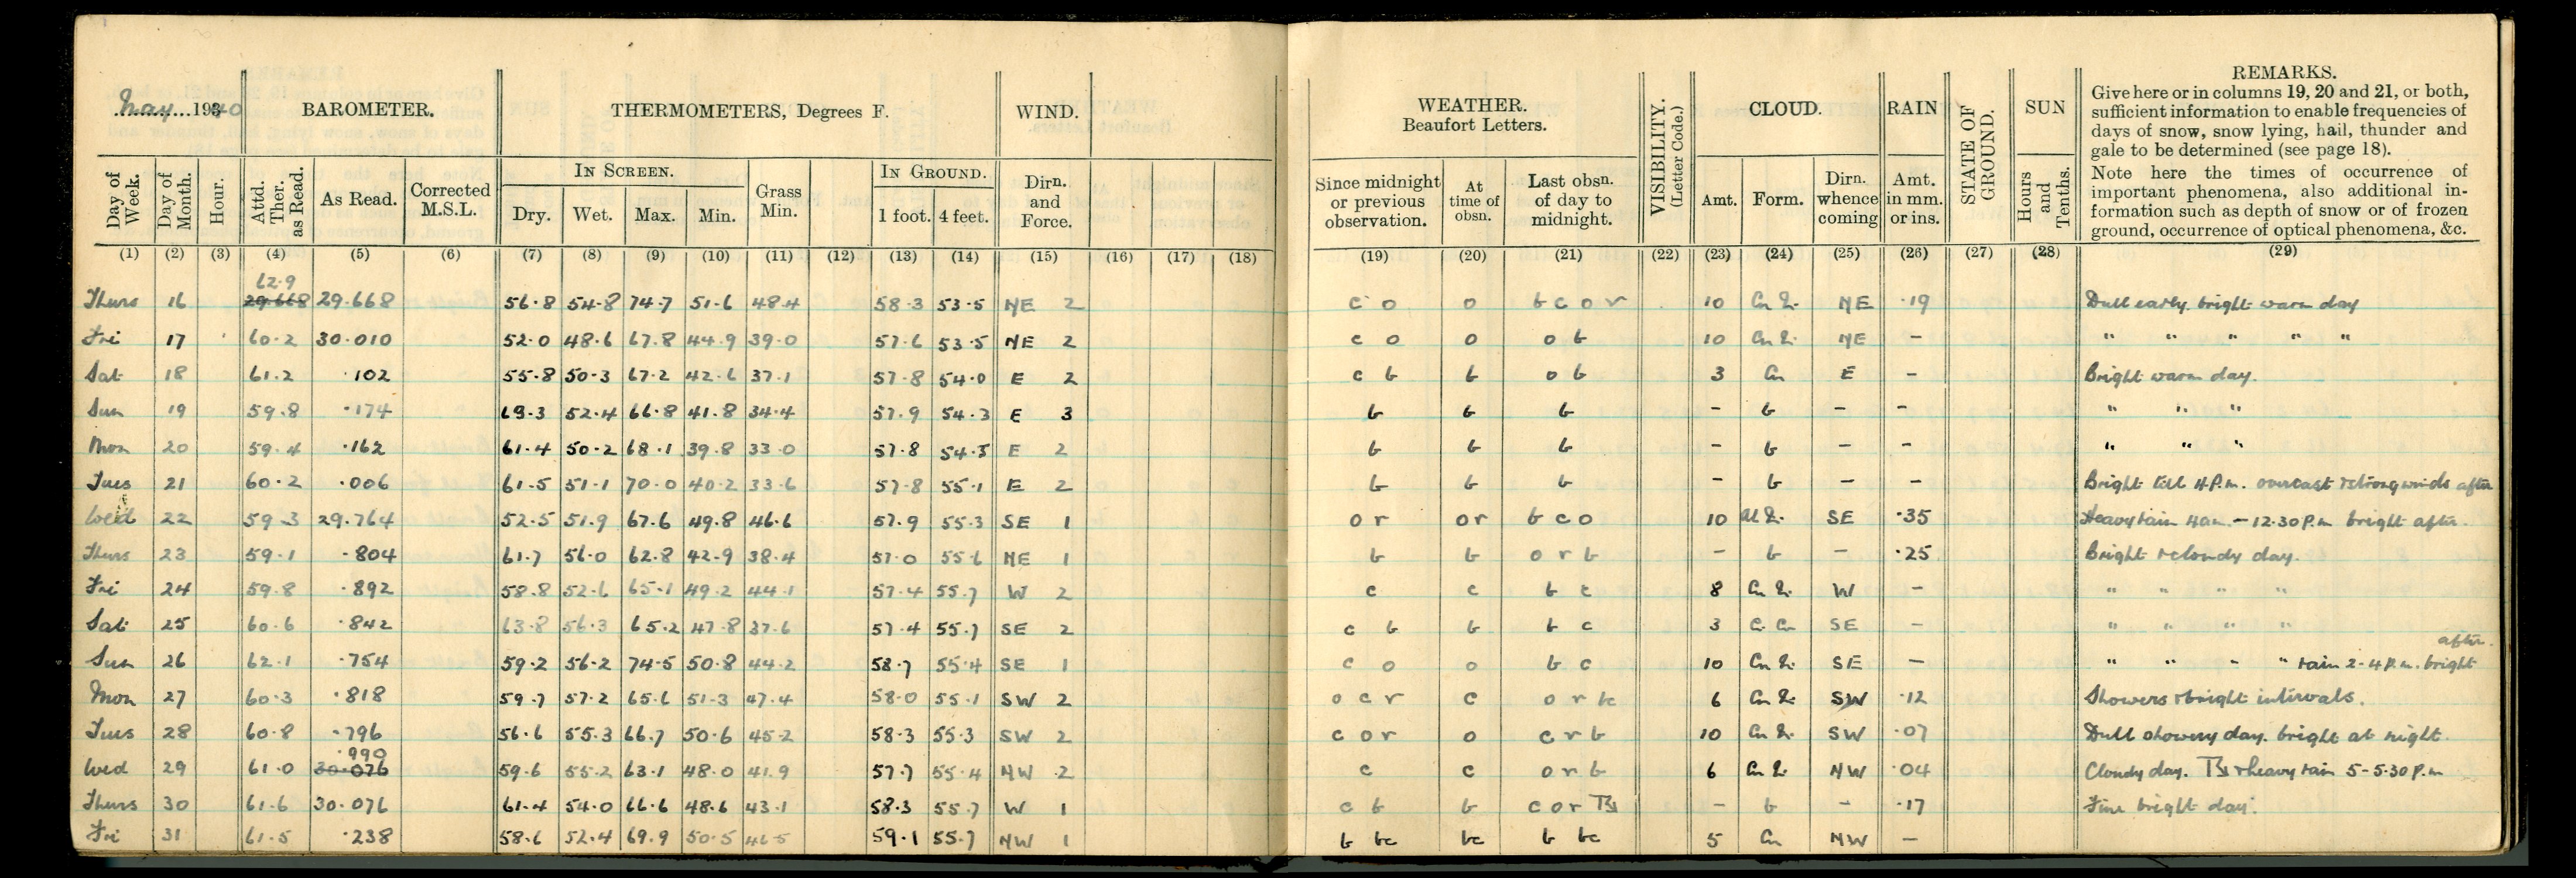 May 1940 BAROMETER. THERMOMETERS, Degrees F. WIND. WEATHER. Beaufort Letters. VISIBILITY. (Letter Code.) CLOUD. RAIN STATE OF GROUND. SUN REMARKS.
Give here or in columns 19, 20 and 21, or both,
sufficient information to enable frequencies of
days of snow, snow lying, hail, thunder and
gale to be determined (see page 18).
Note here the times of occurrence of
important phenomena, also additional in-
formation such as depth of snow or of frozen
ground, occurrence of optical phenomena, &c.
Day of Week. Day of Month. Hour. Attd. Ther. as Read. As Read. Corrected M.S.L. IN SCREEN. Dry. Wet. Max. Min. Grass Min. IN GROUND. 1 foot. 4 feet. Dirn. and Force. Since midnight or previous observation. At time of obsn. Last obsn. of day to midnight. Amt. Form. Dirn. whence coming Amt. in mm. or ins. Hours and Tenths.
(1) (2) (3) (4) (5) (6) (7) (8) (9) (10) (11) (12) (13) (14) (15) (16) (17) (18) (19) (20) (21) (22) (23) (24) (25) (26) (27) (28) (29)
62.9
Thurs 16 29.668 29.668 56.8 54.8 74.7 51.6 48.4 58.3 53.5 NE 2 c o o b c o r 10 NE .19 Dull early. bright warm day
Fri 17 60.2 30.010 52.0 48.6 67.8 44.9 39.0 57.6 53.5 NE 2 c o o o b 10 NE - " " " " "
Sat 18 61.2 .102 55.8 50.3 67.2 42.6 37.1 57.8 54.0 E 2 c b b o b 3 Cu E - Bright warm day.
Sun 19 59.8 .174 63.3 52.4 66.8 41.8 34.4 57.9 54.3 E 3 b b b - b - - " " "
Mon 20 59.4 .162 61.4 50.2 68.1 39.8 33.0 57.8 54.5 E 2 b b b - b - - " " "
Tues 21 60.2 .006 61.5 51.1 70.0 40.2 33.6 57.8 55.1 E 2 b b b - b - - Bright till 4 P.m. overcast & strong winds after
Wed 22 59.3 29.764 52.5 51.9 67.6 49.8 46.6 57.9 55.3 SE 1 o r o r b c o 10 SE .35 Heavy rain 4am - 12.30 P.m bright after.
Thurs 23 59.1 .804 61.7 56.0 62.8 42.9 38.4 57.0 55.6 NE 1 b b o r b - b - .25 Bright & cloudy day.
Fri 24 59.8 .892 58.8 52.6 65.1 49.2 44.1 57.4 55.7 W 2 c c b c 8 W - " " " "
Sat 25 60.6 .842 63.8 56.3 65.2 47.8 37.6 57.4 55.7 SE 2 c b b b c 3 SE - " " " "
after.
Sun 26 62.1 .754 59.2 56.2 74.5 50.8 44.2 58.7 55.4 SE 1 c o o b c 10 SE - " " " " rain 2-4 P.m. bright
Mon 27 60.3 .818 59.7 57.2 65.6 51.3 47.4 58.0 55.1 SW 2 o c r c o r bc 6 SW .12 Showers & bright intervals.
Tues 28 60.8 .796 56.6 55.3 66.7 50.6 45.2 58.3 55.3 SW 2 c o r o c r b 10 SW .07 Dull showery day. bright at night.
.990
Wed 29 61.0 30.076 59.6 55.2 63.1 48.0 41.9 57.7 55.4 NW 2 c c o r b 6 NW .04 Cloudy day. & heavy rain 5-5.30 P.m
Thurs 30 61.6 30.076 61.4 54.0 66.6 48.6 43.1 58.3 55.7 W 1 c b b c o r - b - .17 Fine bright day.
Fri 31 61.5 .238 58.6 52.4 69.9 50.5 46.5 59.1 55.7 NW 1 b bc bc b bc 5 Cu NW -